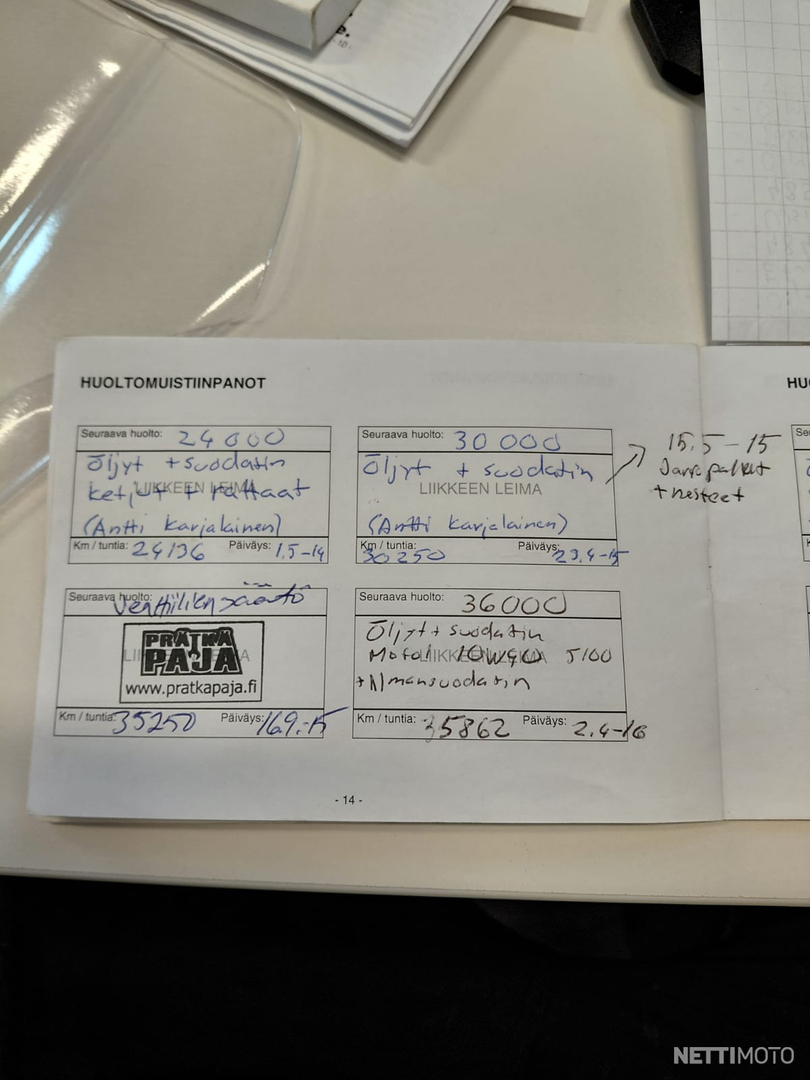 e.
- 10 -
HUOLTOMUISTIINPANOT
HU
Seuraava huolto: 24 000
Öljyt + suodatin
LIIKKEEN LEIMA
ketjut + rattaat
(Antti Karjalainen)
Km / tuntia: 24136 Päiväys: 1.5-14
Seuraava huolto: 30 000
Öljyt + suodatin
LIIKKEEN LEIMA
(Antti Karjalainen)
Km / tuntia: 30250 Päiväys: 23.4-15
15.5-15
Jarrupalat
+ nesteet
Seuraava huolto: Venttiilien säätö
PRÄTKÄ
PAJA
www.pratkapaja.fi
Km / tuntia: 35250 Päiväys: 16.9.-15
Seuraava huolto: 36000
Öljyt + suodatin
LIIKKEEN LEIMA
Motul 10W40 5100
+ Ilmansuodatin
Km / tuntia: 35862 Päiväys: 2.4-16
- 14 -
NETTIMOTO